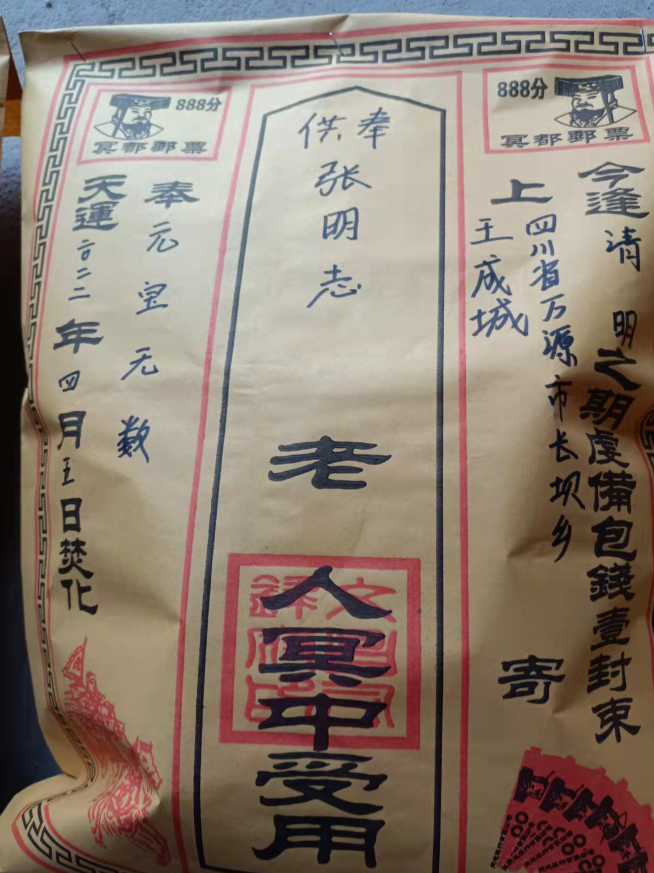 888分
冥都郵票
888分
冥都郵票
今逢清明之期虔備包錢壹封束
四川省万源市长坝乡
上王成城寄
奉供张明志老人冥中受用
奉元宝无数
天運二〇二二年四月五日焚化